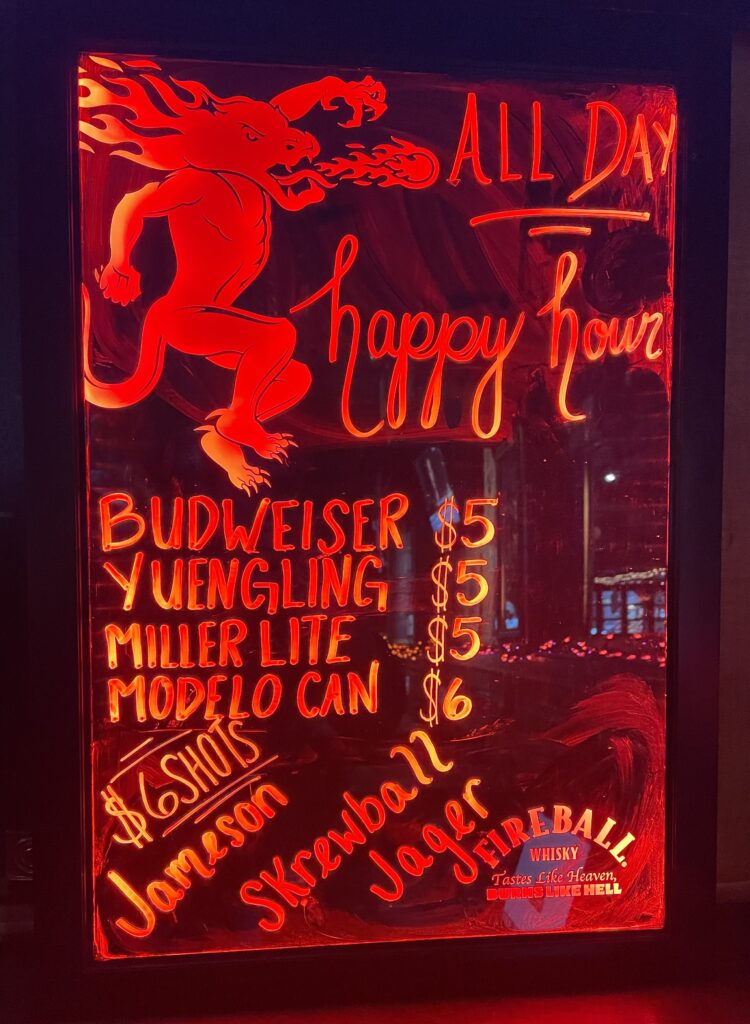 ALL DAY
happy hour
BUDWEISER $5
YUENGLING $5
MILLER LITE $5
MODELO CAN $6
$6 SHOTS
Jameson
SKrewball
Jager
FIREBALL
WHISKY
Tastes Like Heaven,
BURNS LIKE HELL